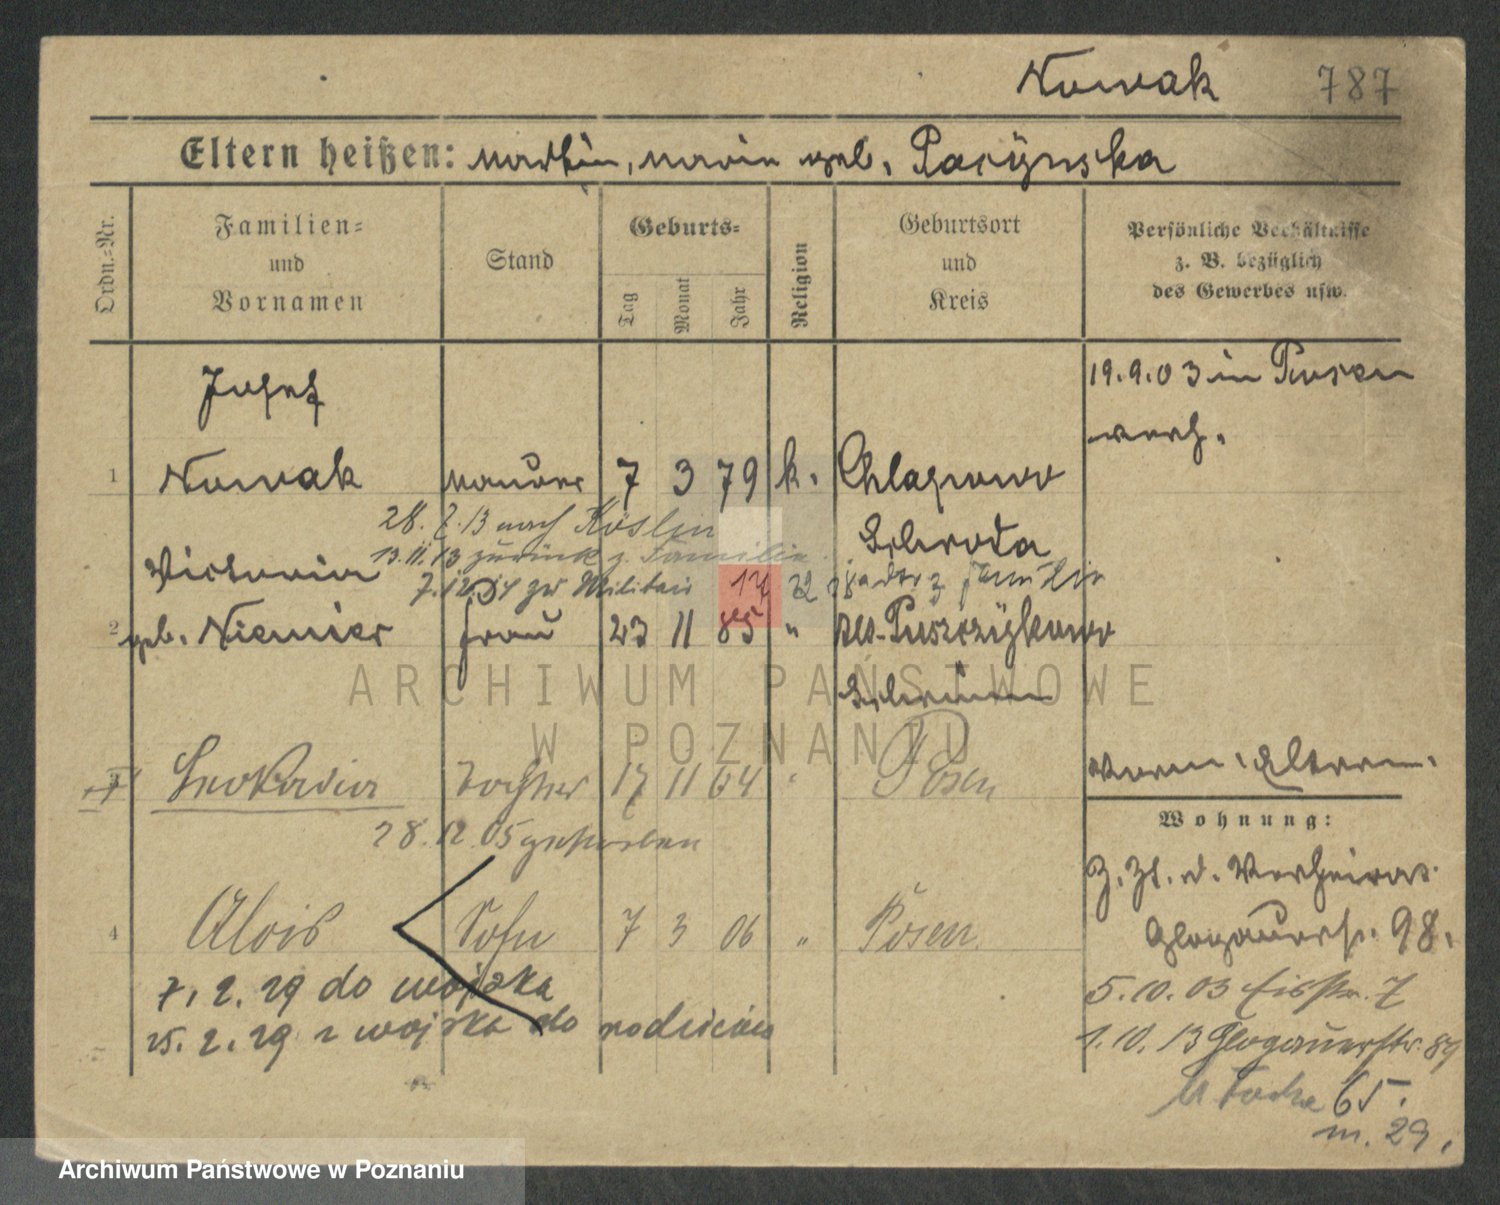 Nowak 787
Eltern heißen: Martin, Maria geb. Paczynska
Ordn.-Nr.
Familien=
und
Vornamen
Stand
Geburts=
Tag
Monat
Jahr
Religion
Geburtsort
und
Kreis
Persönliche Verhältnisse
z. B. bezüglich
des Gewerbes usw.
Josef
19.9.03 in Posen
verh.
1 Nowak Maurer 7 3 79 k. Chlapowo
28. 13 nach Köslin
Schroda
13.11.13 zurück z. Familie
Victoria
zur Militair
2 geb. Niemier Frau 23 11 85 " Alt-Puszczykowo
Schrimm
ARCHIWUM PAŃSTWOWE
W POZNANIU
Leokadia Tochter 17 11 04 " Posen
Vorm. Eltern.
28.12.05 gestorben
Wohnung:
z. Zt. d. Verheirat.
4 Alois Sohn 7 3 06 " Posen
Glogauerstr. 98.
7.2.29 do wojska
5.10.03 7
25.2.29 z wojska do rodziców
1.10.13 Glogauerstr. 89
M Focha 65.
m. 29.
Archiwum Państwowe w Poznaniu